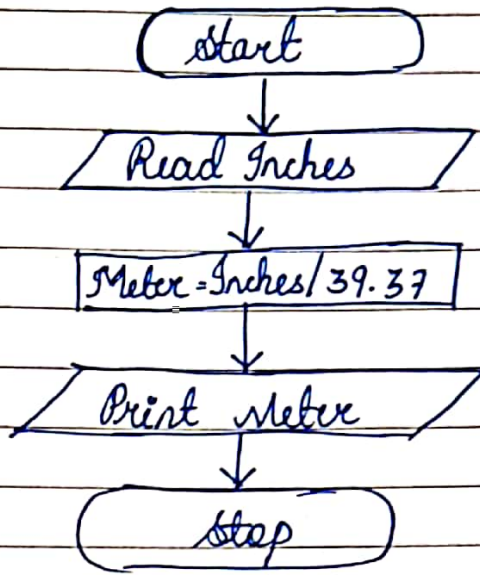 Start
Read Inches
Meter = Inches / 39.37
Print Meter
Stop